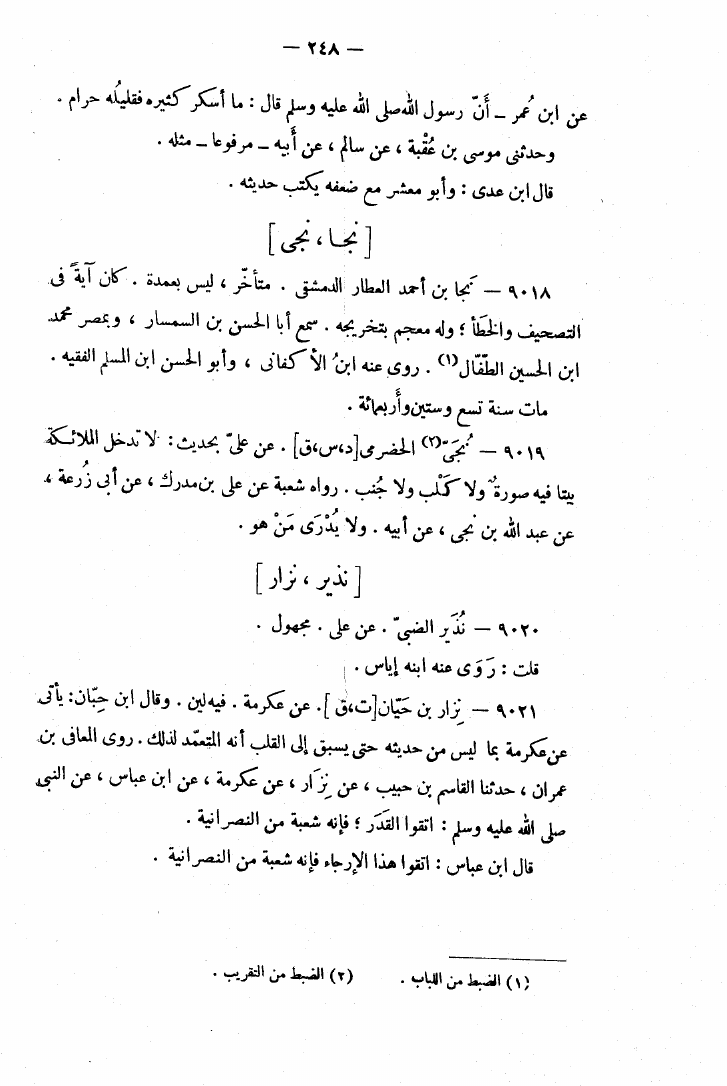 — ٢٤٨ —
عن ابن عُمر – أَنّ رسول الله صلى الله عليه وسلم قال : ما أسكر كثيره فقليلُه حرام .
وحدثنى موسى بن عُقْبة ، عن سالم ، عن أَبيه – مرفوعا – مثله .
قال ابن عدى : وأبو معشر مع ضعفه يكتب حديثه .
[ نجا ، نجى ]
٩٠١٨ – نجا بن أحمد العطار الدمشقى . متأخّر ، ليس بعمدة . كان آيةً فى
التصحيف والخطَأ ؛ وله معجم بتخريجه . سمع أبا الحسن بن السمسار ، وبمصر محمد
ابن الحسين الطفّال(١) . روى عنه ابنُ الأكفانى ، وأبو الحسن ابن المسلم الفقيه .
مات سنة تسع وستين وأَربعمائة .
٩٠١٩ – نُجَىّ(٢) الحضرمى [د،س،ق] . عن علىّ بحديث : لا تدخل الملائكة
بيتا فيه صورة ولا كَلْب ولا جُنب . رواه شعبة عن على بن مدرك ، عن أبى زُرعة ،
عن عبد الله بن نجى ، عن أبيه . ولا يُدْرَى مَنْ هو .
[ نذير ، نزار ]
٩٠٢٠ – نُذَير الضبىّ . عن على . مجهول .
قلت : رَوَى عنه ابنه إياس .
٩٠٢١ – نِزار بن حَيّان [ت،ق] . عن عكرمة . فيه لين . وقال ابن حِبّان: يأتى
عن عكرمة بما ليس من حديثه حتى يسبق إلى القلب أنه المتعمّد لذلك . روى المعافى بن
عمران ، حدثنا القاسم بن حبيب ، عن نِزَار ، عن عكرمة ، عن ابن عباس ، عن النبى
صلى الله عليه وسلم : اتقوا القَدَر ؛ فإنه شعبة من النصرانية .
قال ابن عباس : اتقوا هذا الإرجاء فإنه شعبة من النصرانية .
(١) الضبط من اللباب . (٢) الضبط من التقريب .